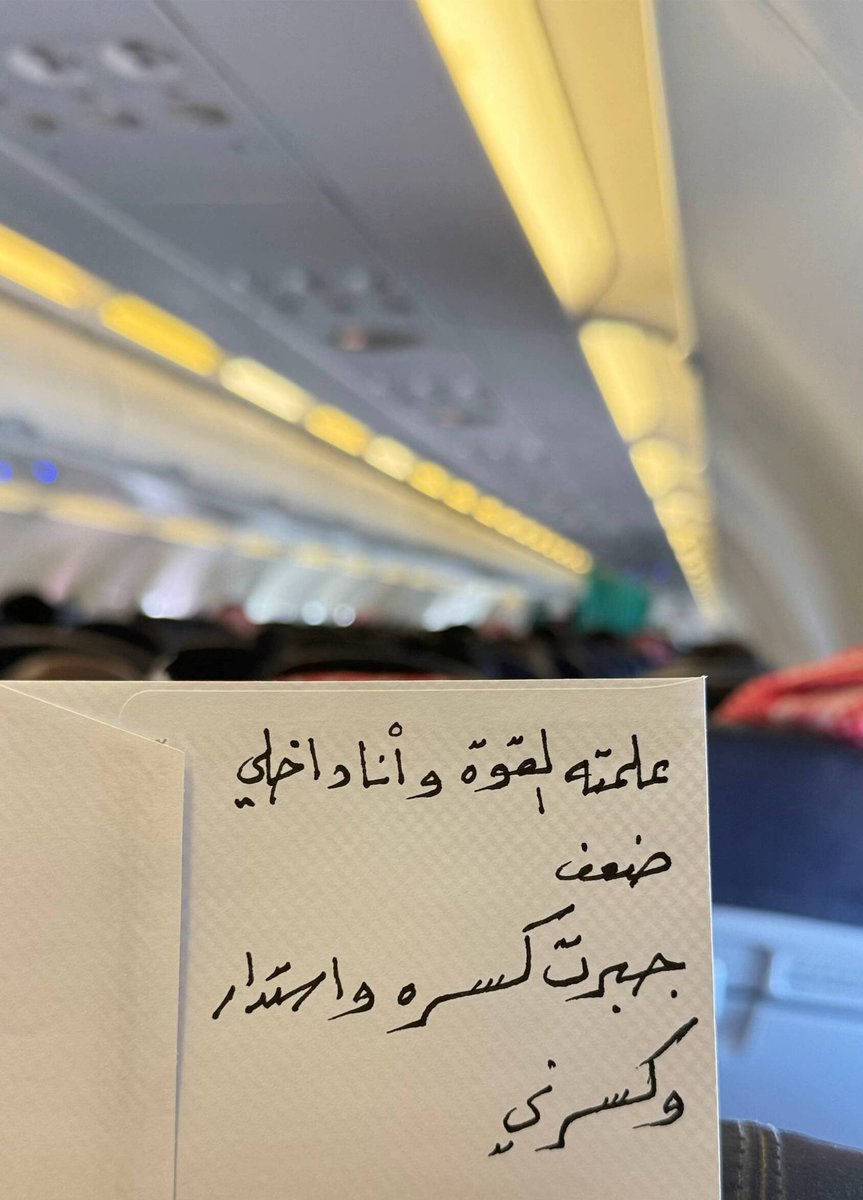 علمته القوّة وأنا داخلي
ضعف
جبرت كسره واستدار
وكسرني